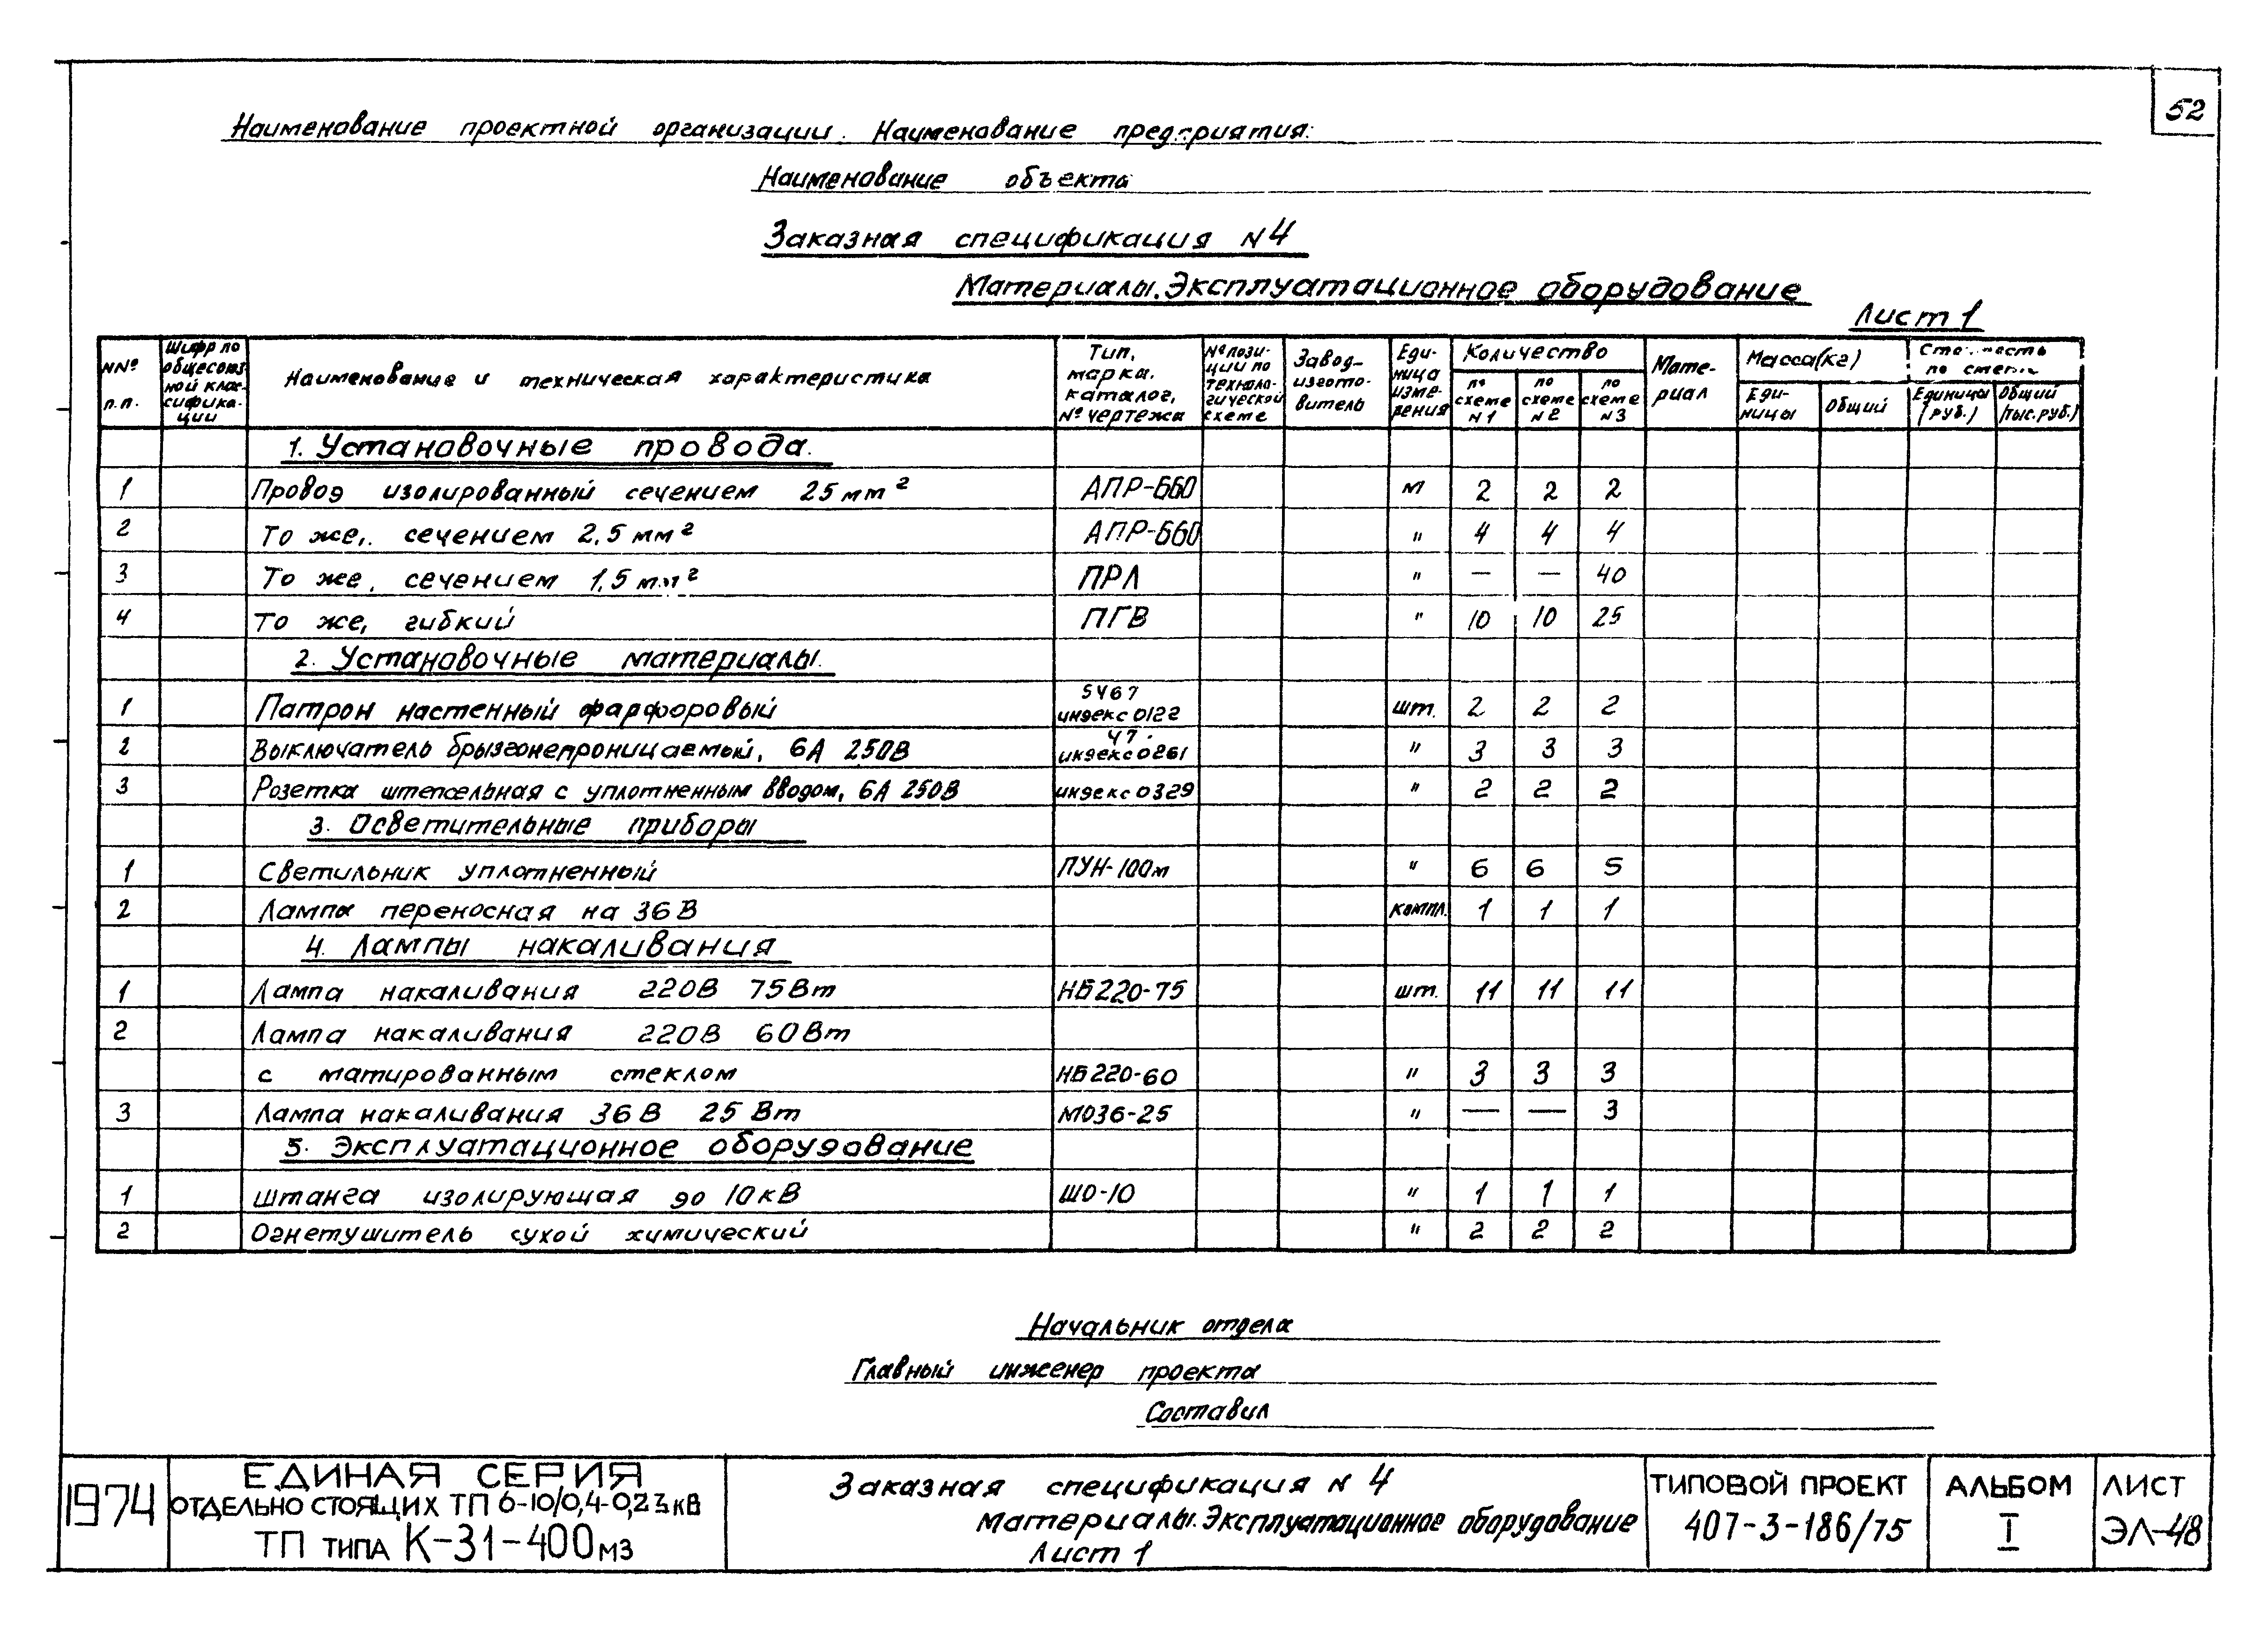 52
Наименование проектной организации. Наименование предприятия:
Наименование объекта
Заказная спецификация N4
Материалы. Эксплуатационное оборудование
Лист 1
NNº п.п. | Шифр по общесоюзной классификации | Наименование и техническая характеристика | Тип, марка, каталог, № чертежа | № позиции по технологической схеме | Завод-изготовитель | Единица измерения | Количество | по схеме N1 | по схеме N2 | по схеме N3 | Материал | Масса(кг) | Единицы | Общий | по | Единицы (руб.) | Общий (тыс.руб.)
1. Установочные провода.
1 Провод изолированный сечением 25 мм² АПР-660 м 2 2 2
2 То же, сечением 2,5 мм² АПР-660 " 4 4 4
3 То же, сечением 1,5 мм² ПРЛ " — — 40
4 То же, гибкий ПГВ " 10 10 25
2. Установочные материалы.
1 Патрон настенный фарфоровый 5467 индекс 0122 шт. 2 2 2
2 Выключатель брызгонепроницаемый, 6А 250В индекс 0261 " 3 3 3
3 Розетка штепсельная с уплотненным вводом, 6А 250В индекс 0329 " 2 2 2
3. Осветительные приборы
1 Светильник уплотненный ПУН-100м " 6 6 5
2 Лампы переносная на 36 В компл. 1 1 1
4. Лампы накаливания
1 Лампа накаливания 220В 75Вт НБ220-75 шт. 11 11 11
2 Лампа накаливания 220В 60Вт
с матированным стеклом НБ220-60 " 3 3 3
3 Лампа накаливания 36 В 25 Вт МО36-25 " — — 3
5. Эксплуатационное оборудование
1 Штанга изолирующая до 10 кВ ШО-10 " 1 1 1
2 Огнетушитель сухой химический " 2 2 2
Начальник отдела
Главный инженер проекта
Составил
1974
ЕДИНАЯ СЕРИЯ
ОТДЕЛЬНО СТОЯЩИХ ТП 6-10/0,4-0,23кВ
ТП ТИПА К-31-400м3
Заказная спецификация N 4
Материалы. Эксплуатационное оборудование
Лист 1
ТИПОВОЙ ПРОЕКТ
407-3-186/75
АЛЬБОМ
I
ЛИСТ
ЭЛ-48